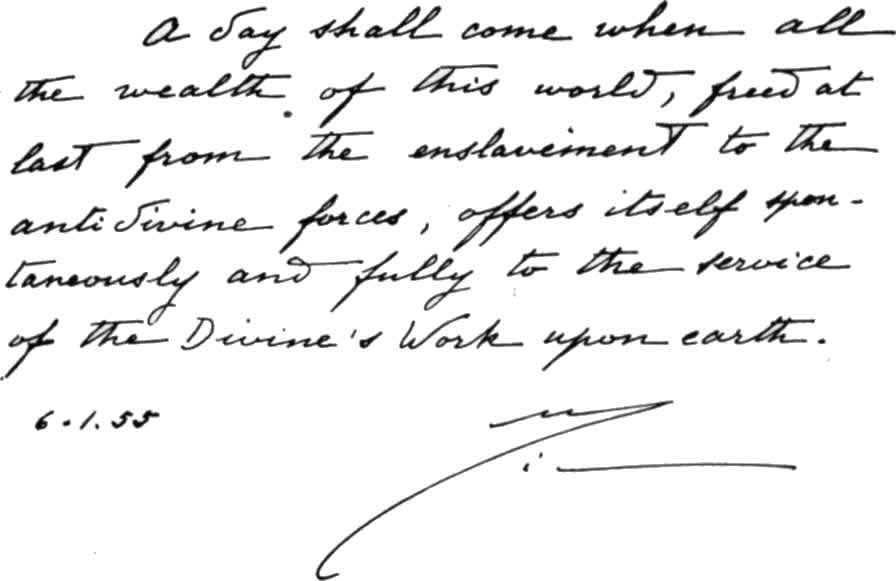 A day shall come when all
the wealth of this world, freed at
last from the enslavement to the
antidivine forces, offers itself spon-
taneously and fully to the service
of the Divine's Work upon earth.
6.1.55